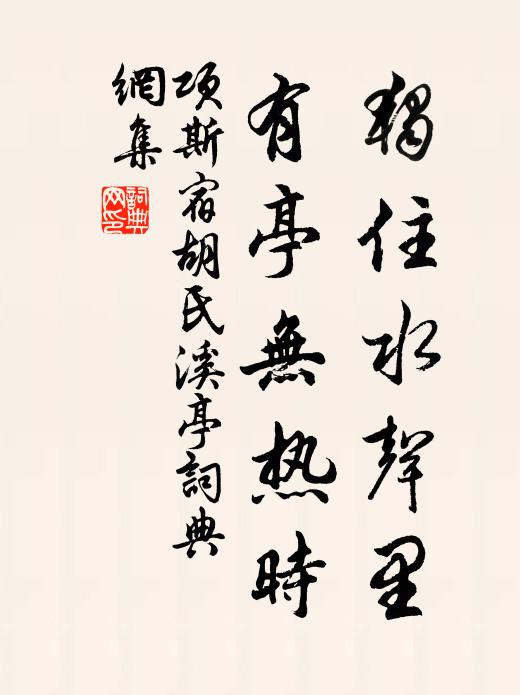 獨住水聲里
有亭無热時
項斯宿胡氏溪亭詞典
網集
詞典網印